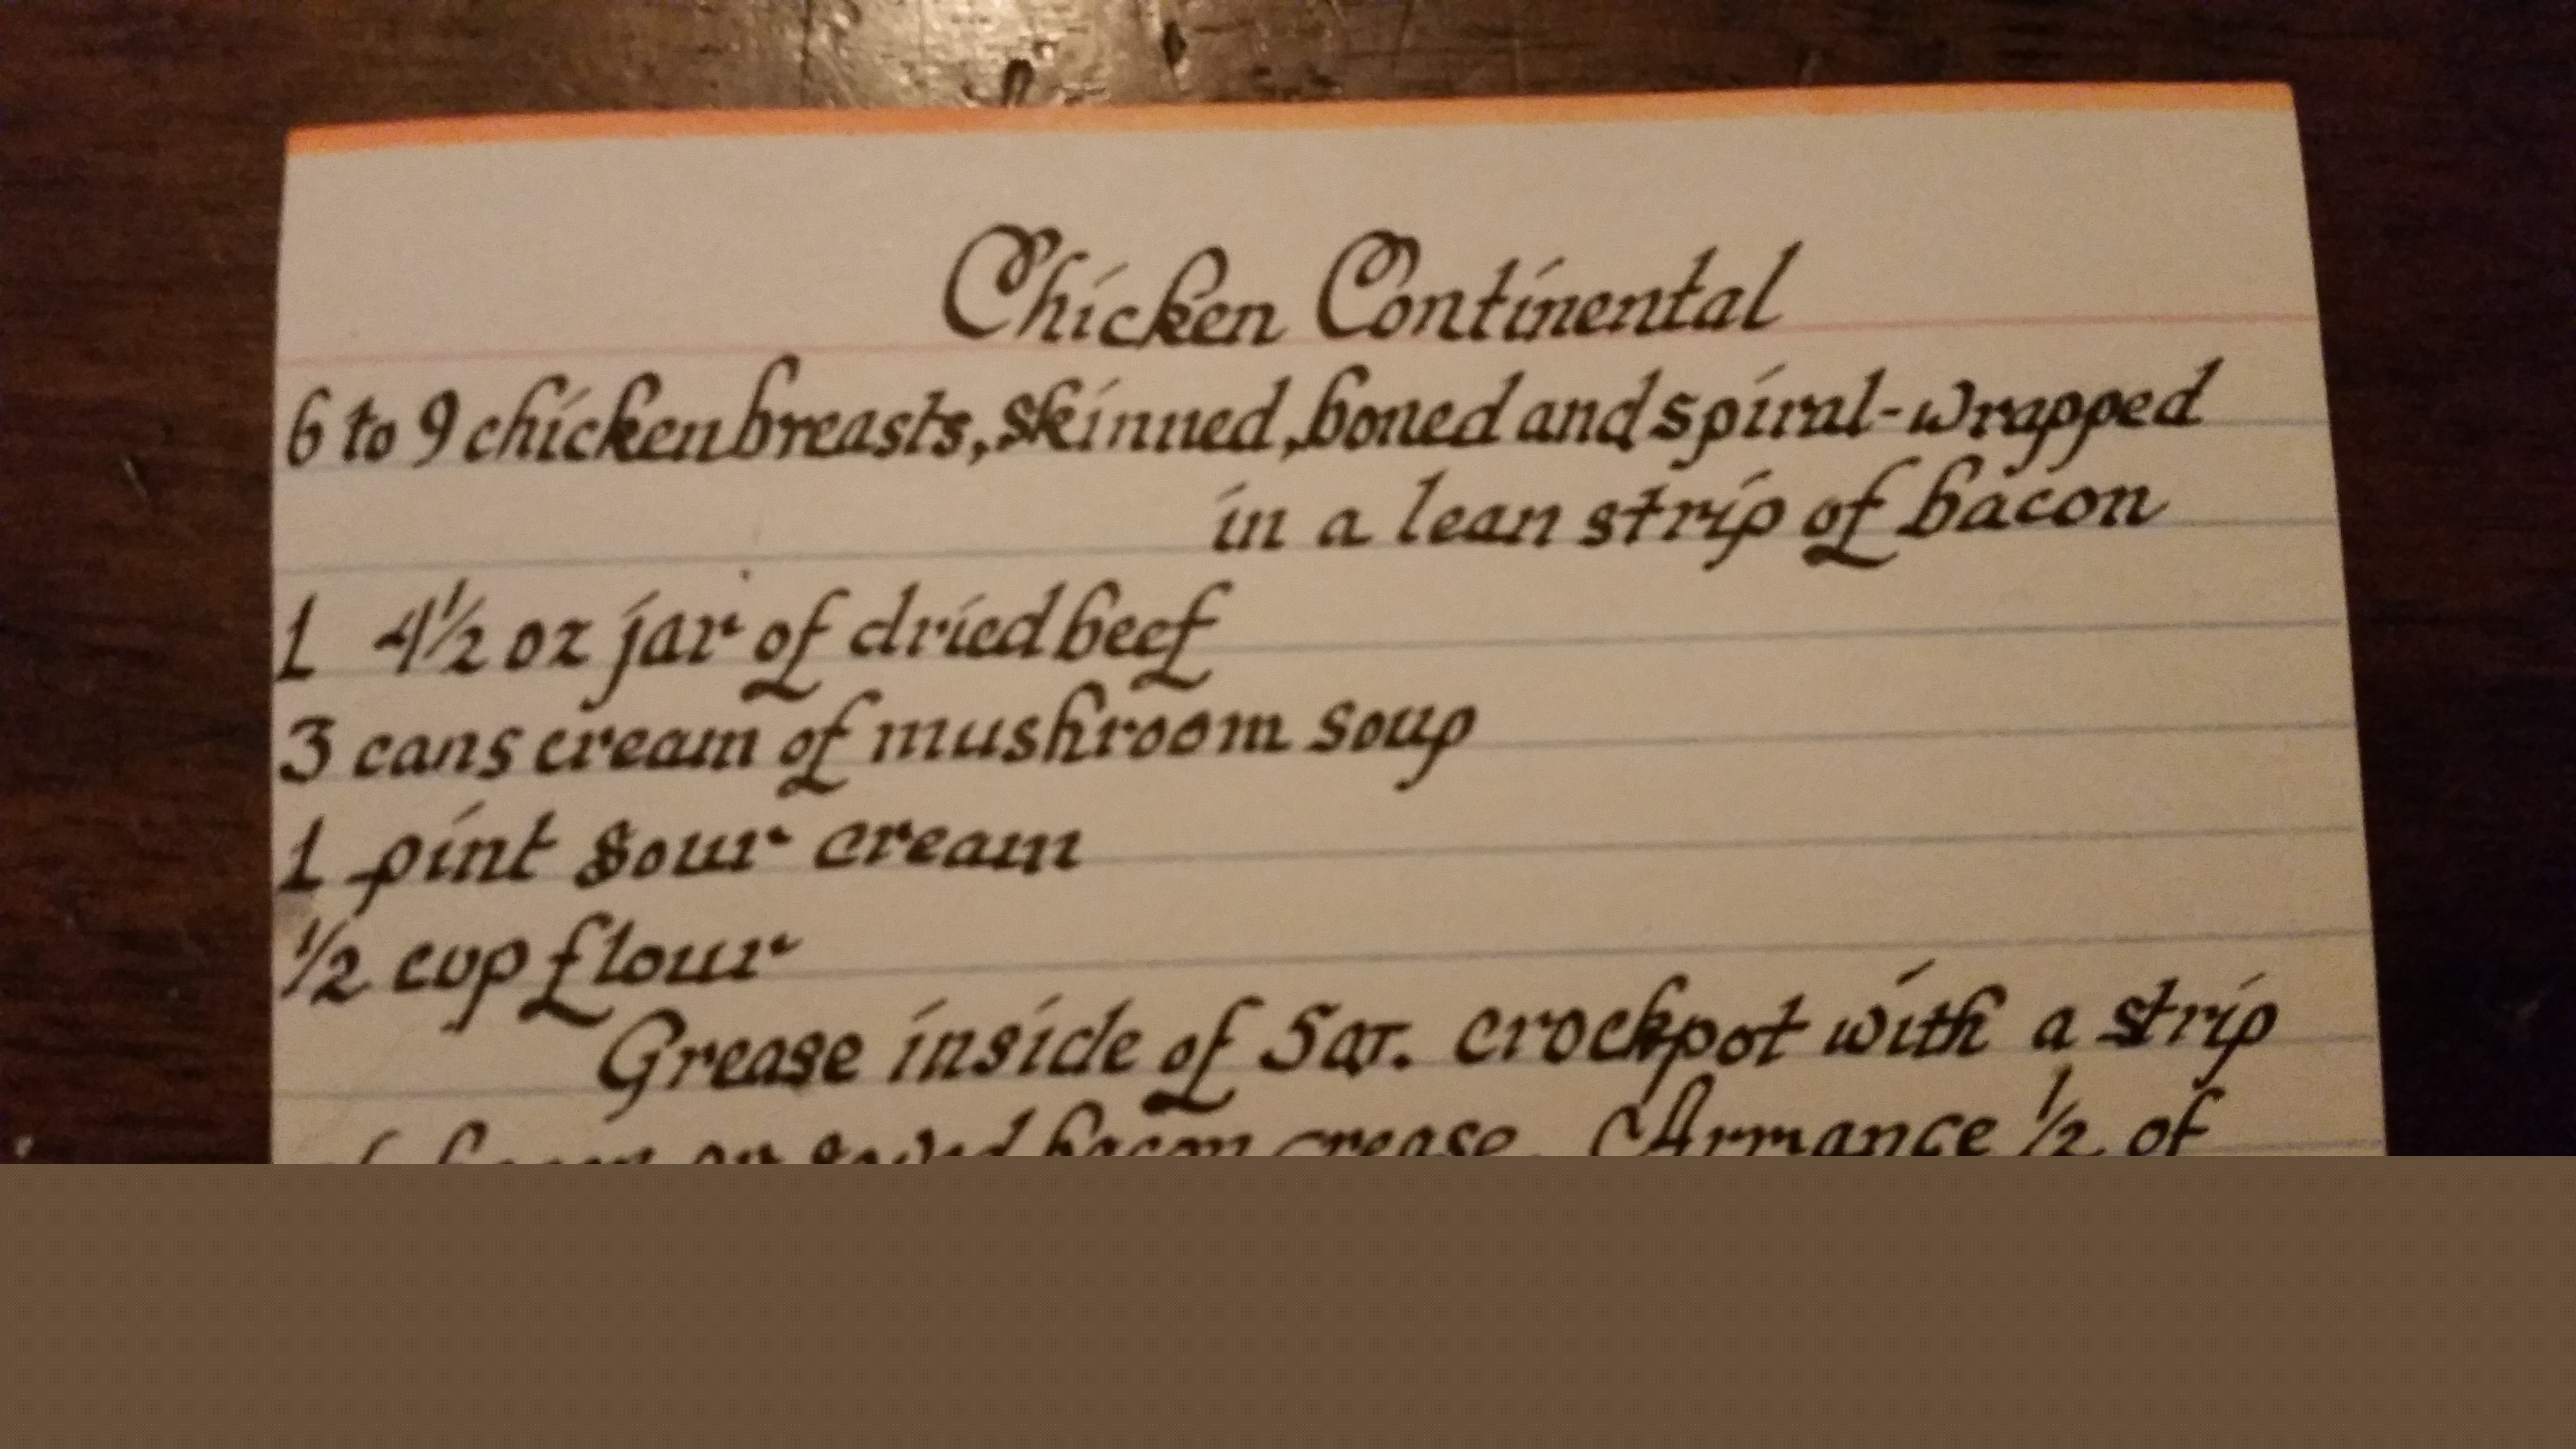 Chicken Continental
6 to 9 chicken breasts, skinned, boned and spiral-wrapped
in a lean strip of bacon
1 4½ oz jar of dried beef
3 cans cream of mushroom soup
1 pint sour cream
½ cup flour
Grease inside of 5 qt. crockpot with a strip
of bacon or saved bacon grease. Arrange ½ of